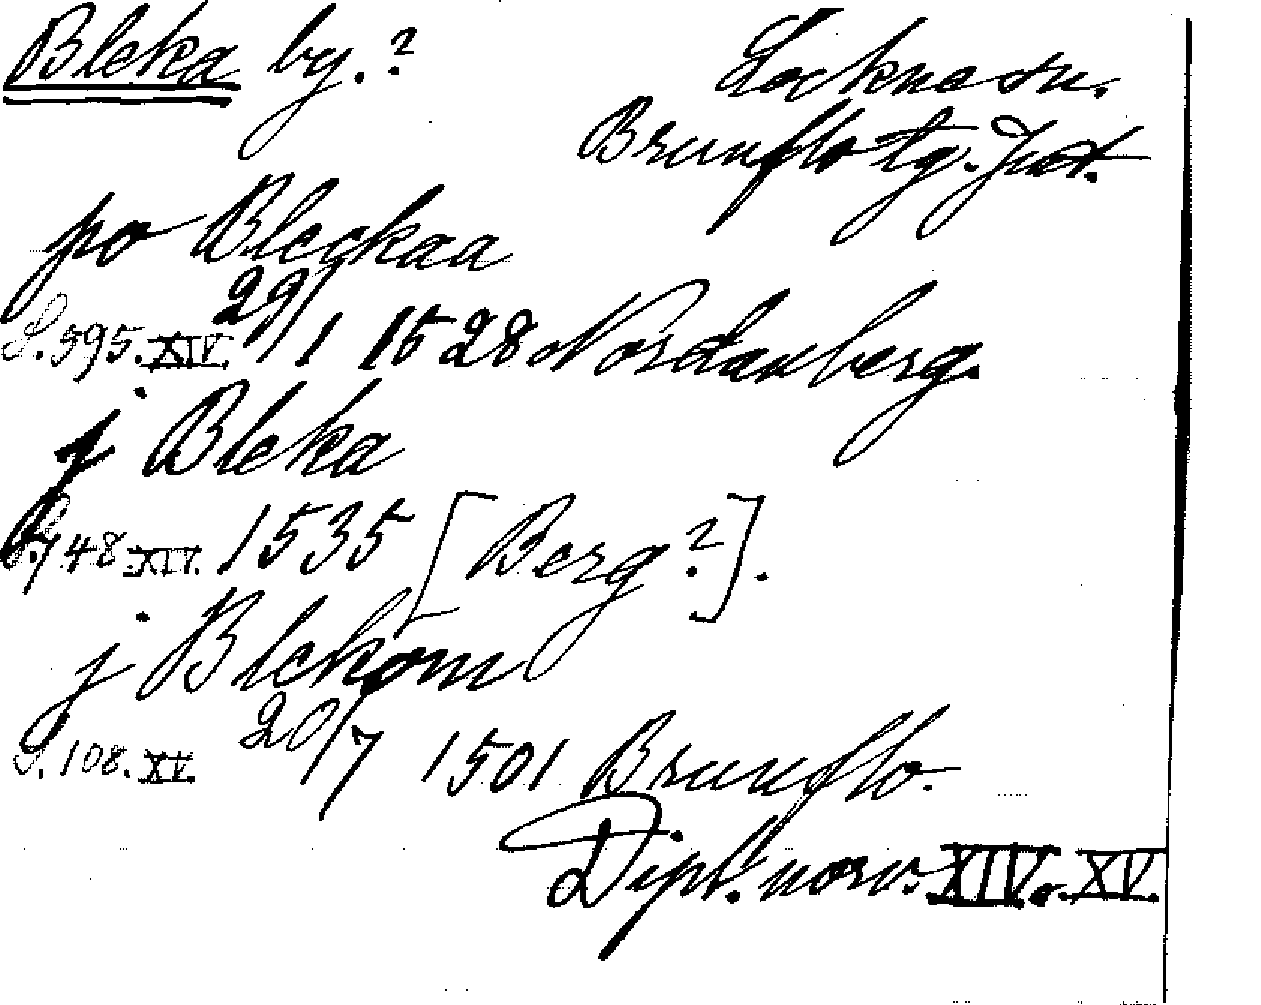 Bleka by.?
Lockne sn.
Brunflo tg. Jmt.
po Bleckaa
S. 595. XIV. 29/1 1528 Nordanberg.
j Bleka
S. 748 XIV. 1535 [Berg?].
j Blekom
S. 108. XV. 20/7 1501 Brunflo.
Dipl. norv. XIV. o. XV.